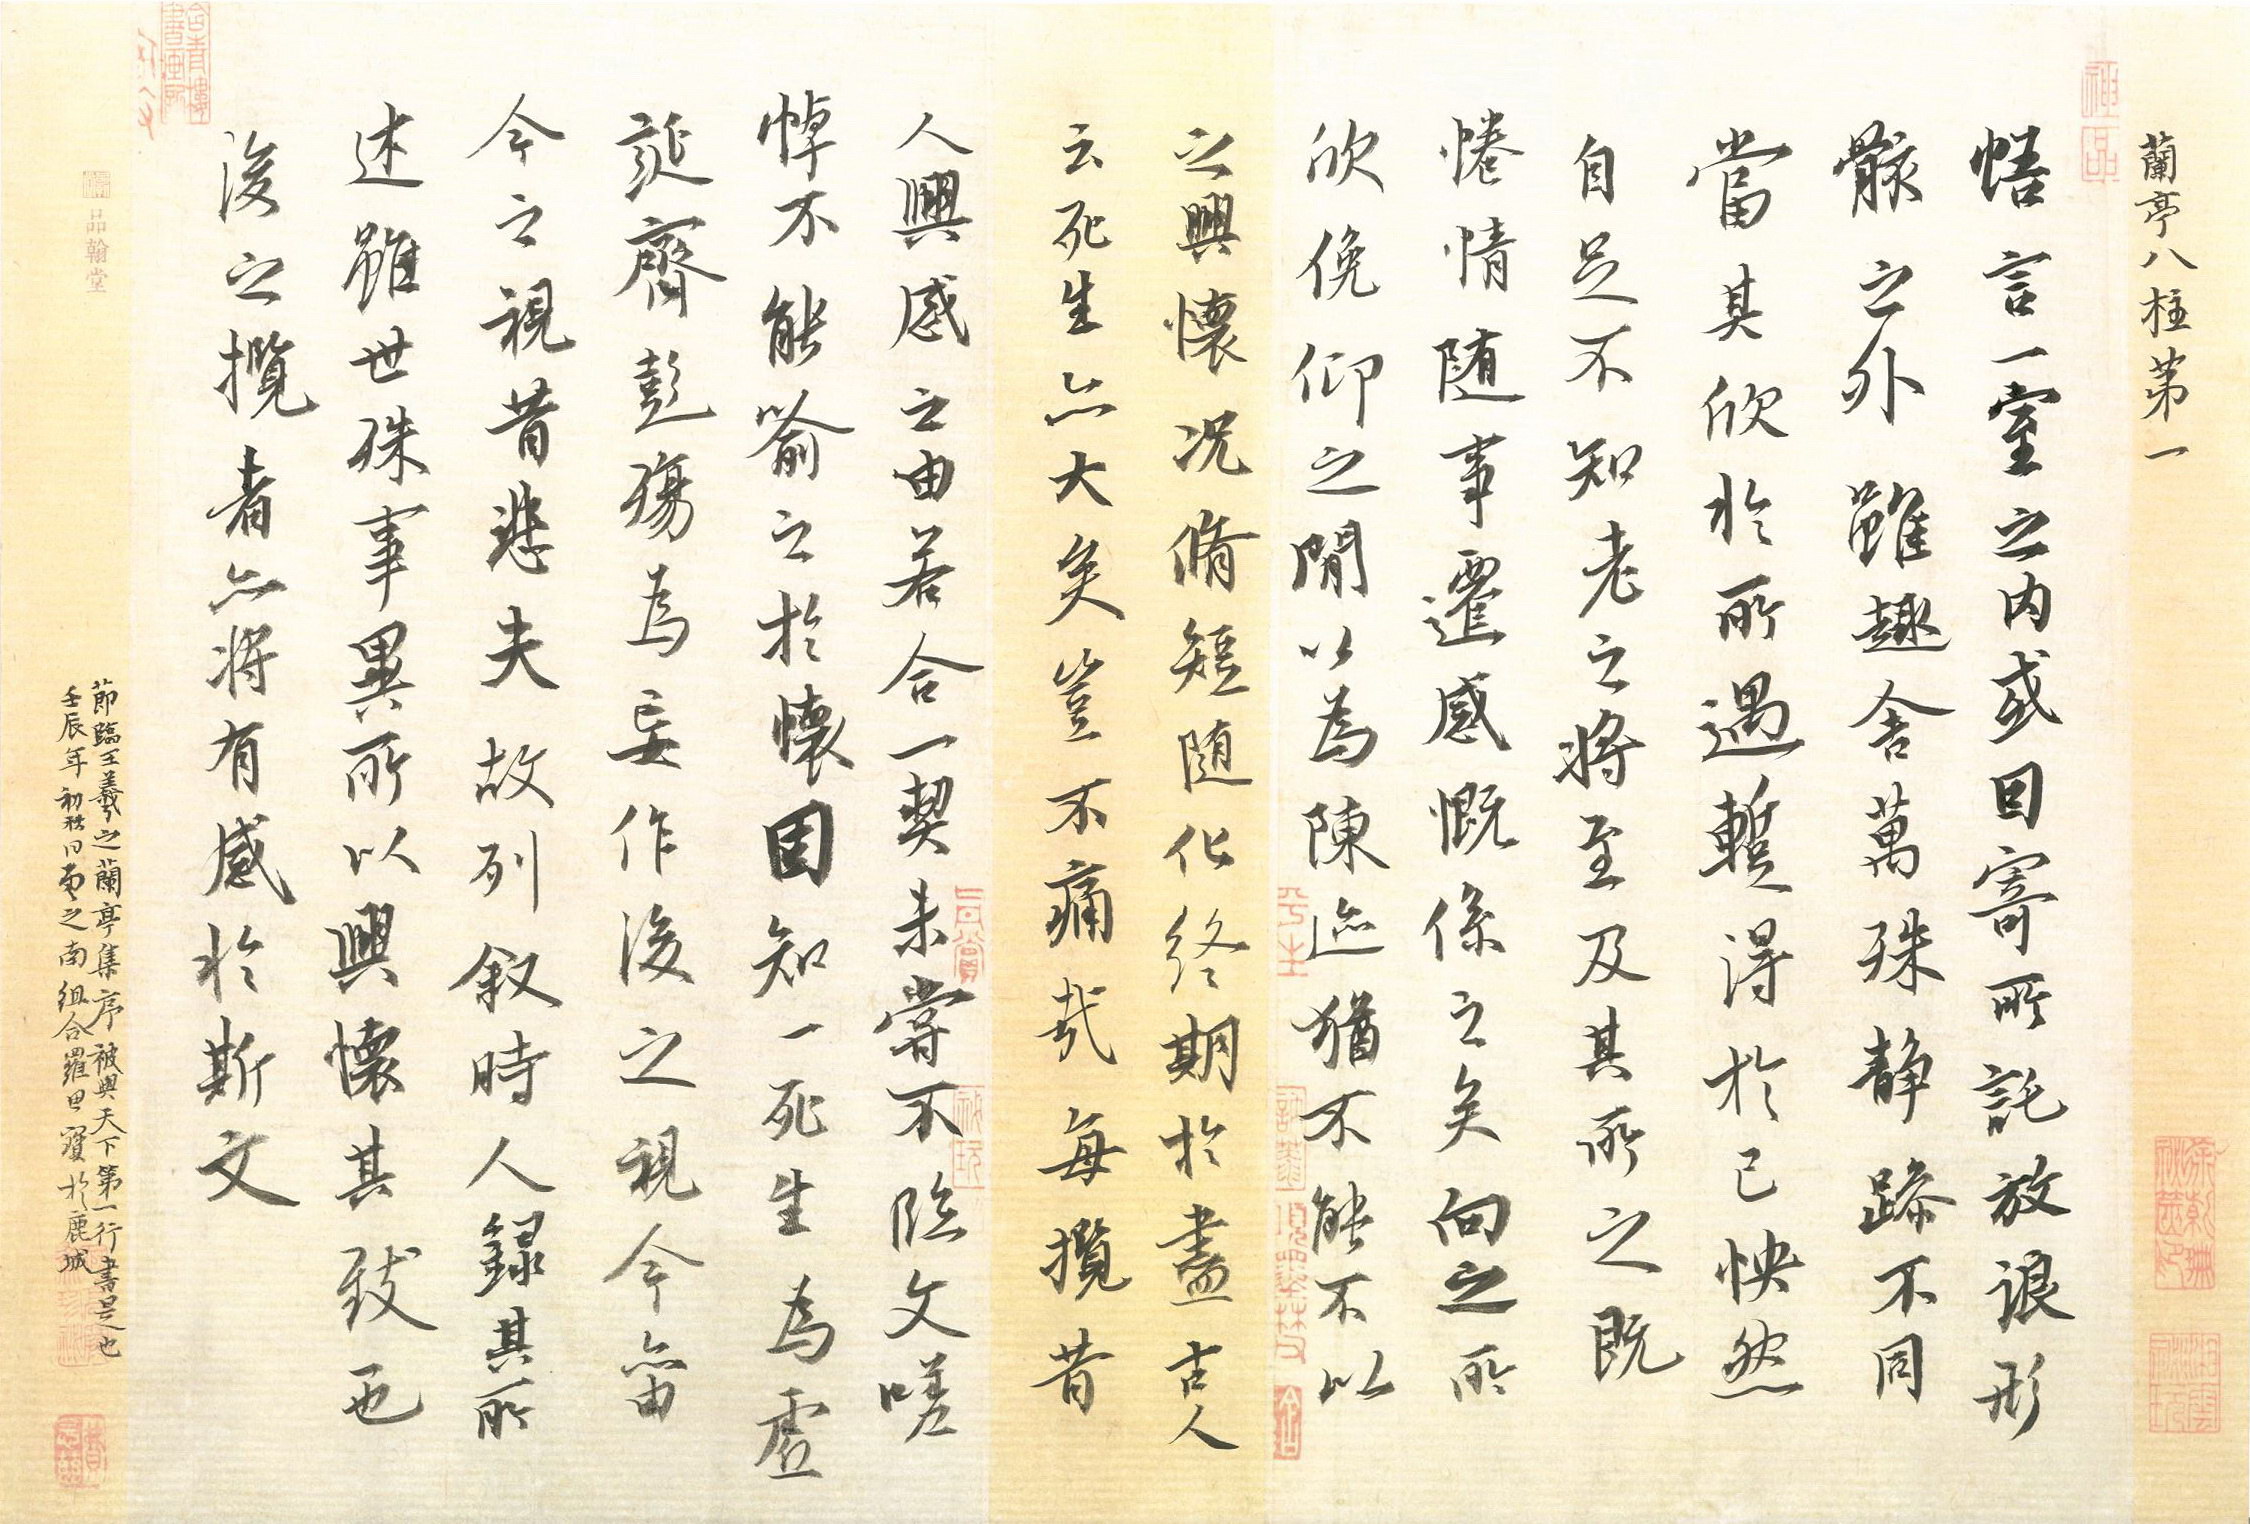 蘭亭八柱第一
悟言一室之内或因寄所託放浪形
骸之外雖趣舍萬殊静躁不同
當其欣於所遇蹔得於己怏然
自足不知老之將至及其所之既
惓情随事遷感慨係之矣向之所
欣俛仰之閒以為陳迹猶不能不以
之興懷况脩短随化終期於盡古人
云死生亦大矣豈不痛哉每攬昔
人興感之由若合一契未嘗不臨文嗟
悼不能喻之於懷固知一死生為虚
誕齊彭殤為妄作後之視今亦由
今之視昔悲夫故列叙時人録其所
述雖世殊事異所以興懷其致一也
後之攬者亦將有感於斯文
節臨王羲之蘭亭集序被興天下第一行書是也
壬辰年初秋日雲之南組合羅田寶於鹿城
品翰堂
神品